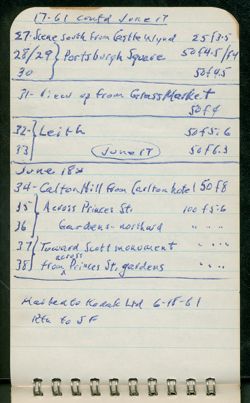 17-61 Contd June 17
27-Scene south from Castle Wynd 25 f3.5
28/29 } Portsburgh Square 50 f4.5/f4
30 50 f4.5
31- View up from Grass Market
50 f4
32- { Leith 50 f5.6
33 June 17 50 f6.3
June 18
34- Calton Hill from Carlton hotel 50 f8
35 } Across Princes St. 100 f5.6
36 Gardens- northward " " "
37 } Toward Scott monument " " "
38 from across Princes St. gardens " " "
Mailed to Kodak Ltd 6-18-61
Rtn to SF